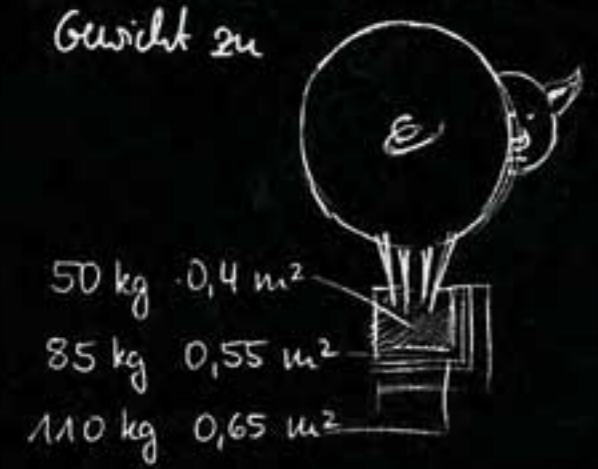 Gewicht zu
50 kg 0,4 m²
85 kg 0,55 m²
110 kg 0,65 m²